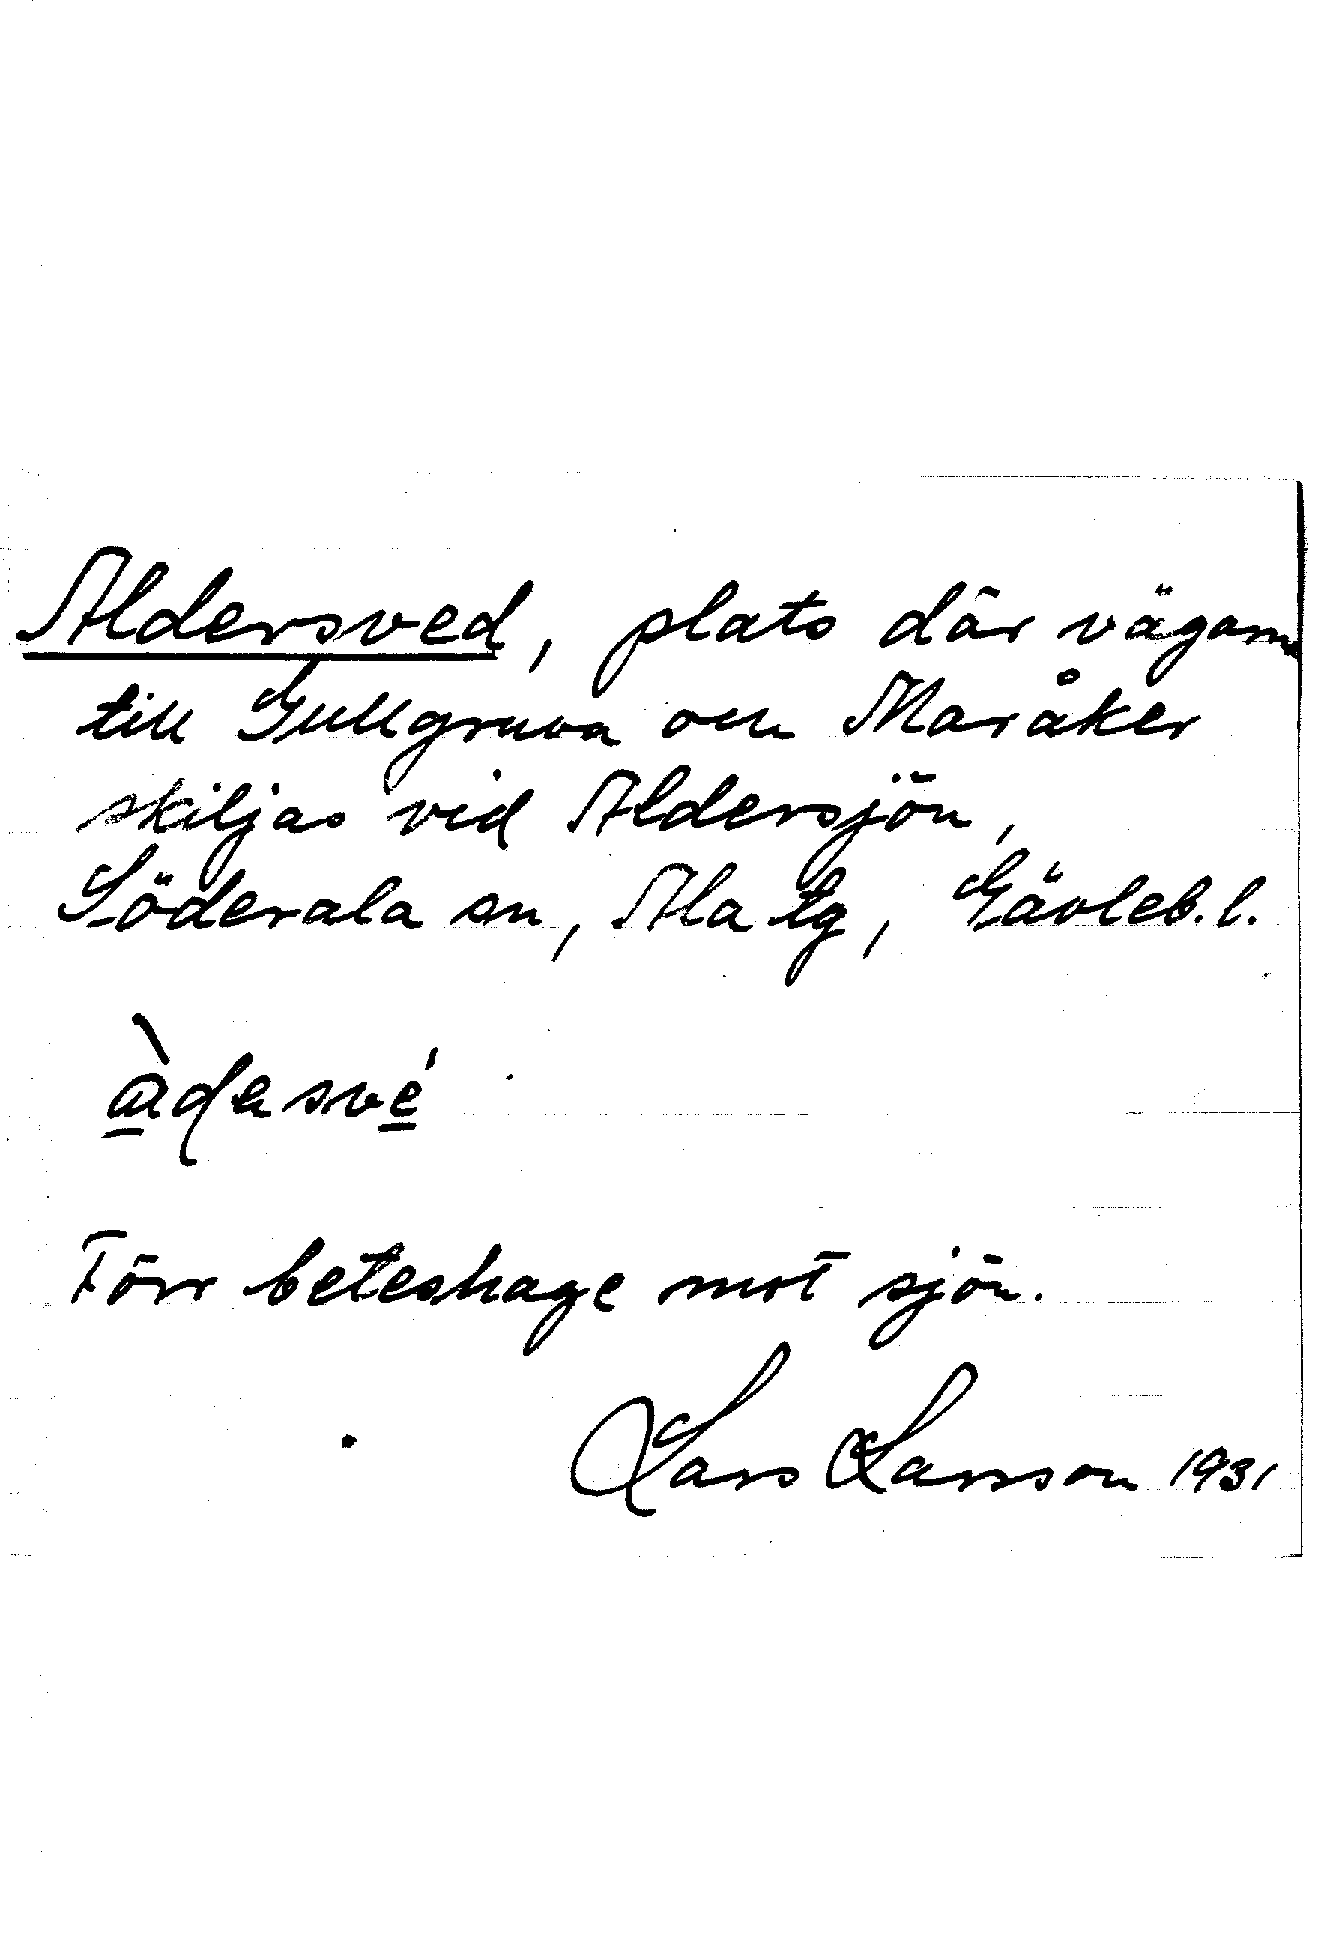 Aldersved, plats där vägarna
till Gullgruva och Maråker
skiljas vid Aldersjön,
Söderala sn, Ala tg, Gävleb. l.
Förr beteshage mot sjön.
Lars Larsson 1931